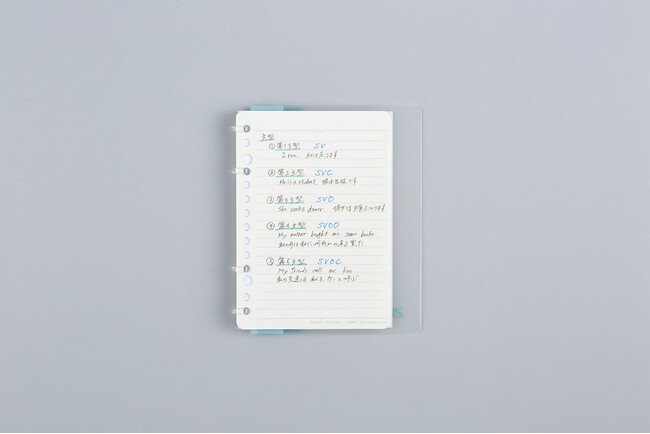 文型
① 第1文型 SV
I run. 私は走ります
② 第2文型 SVC
He is a student. 彼は生徒です
③ 第3文型 SVO
She cooks dinner. 彼女は夕食を作ります
④ 第4文型 SVOO
My mother bought me some books
私の母は私に何冊かの本を買った
⑤ 第5文型 SVOC
My friends call me Ken.
私の友達は私をケンと呼ぶ